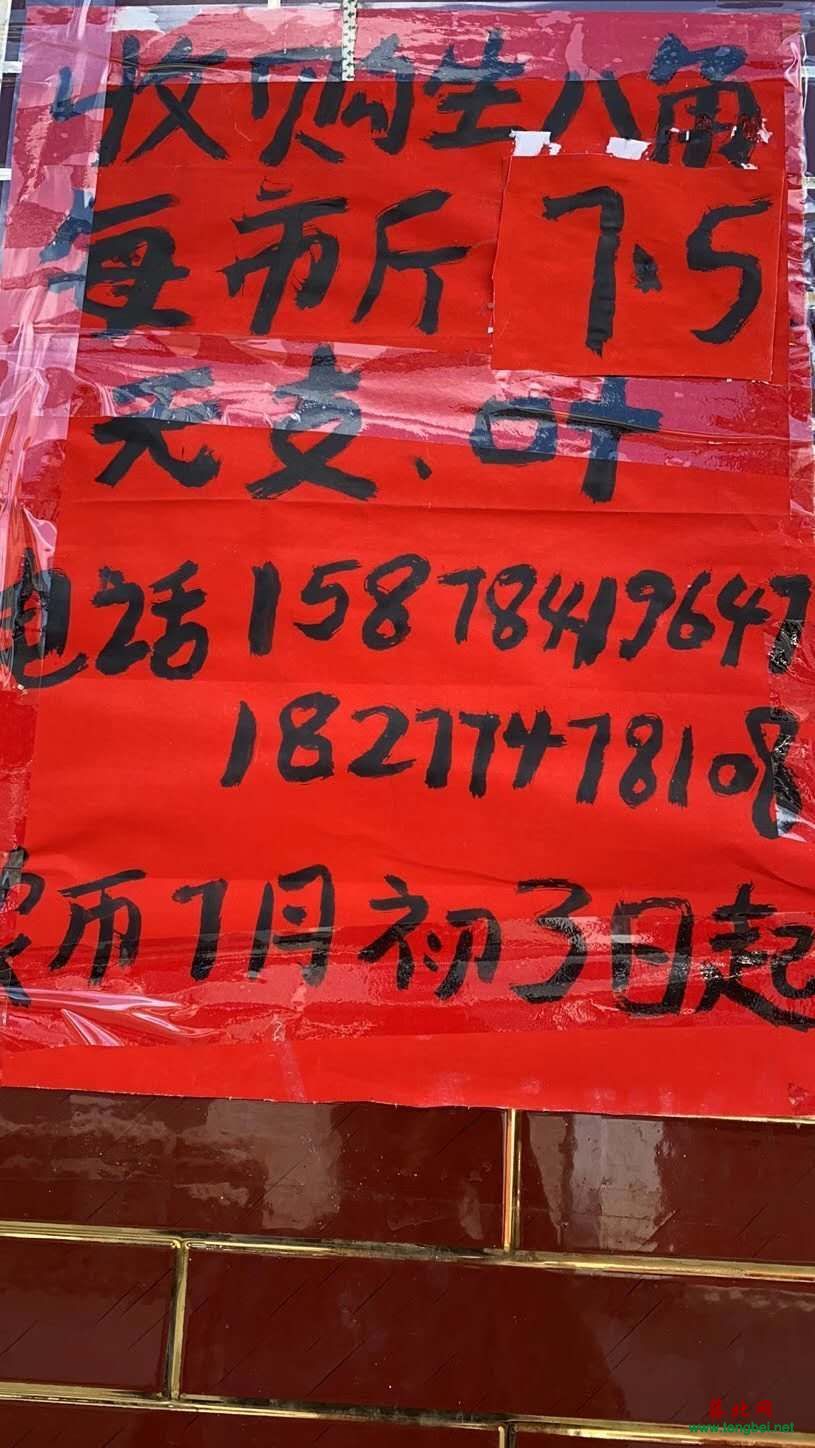 收购生八角
每市斤 7.5
无支、叶
电话 15878419647
18277478108
农历7月初3日起
www.tengbei.net